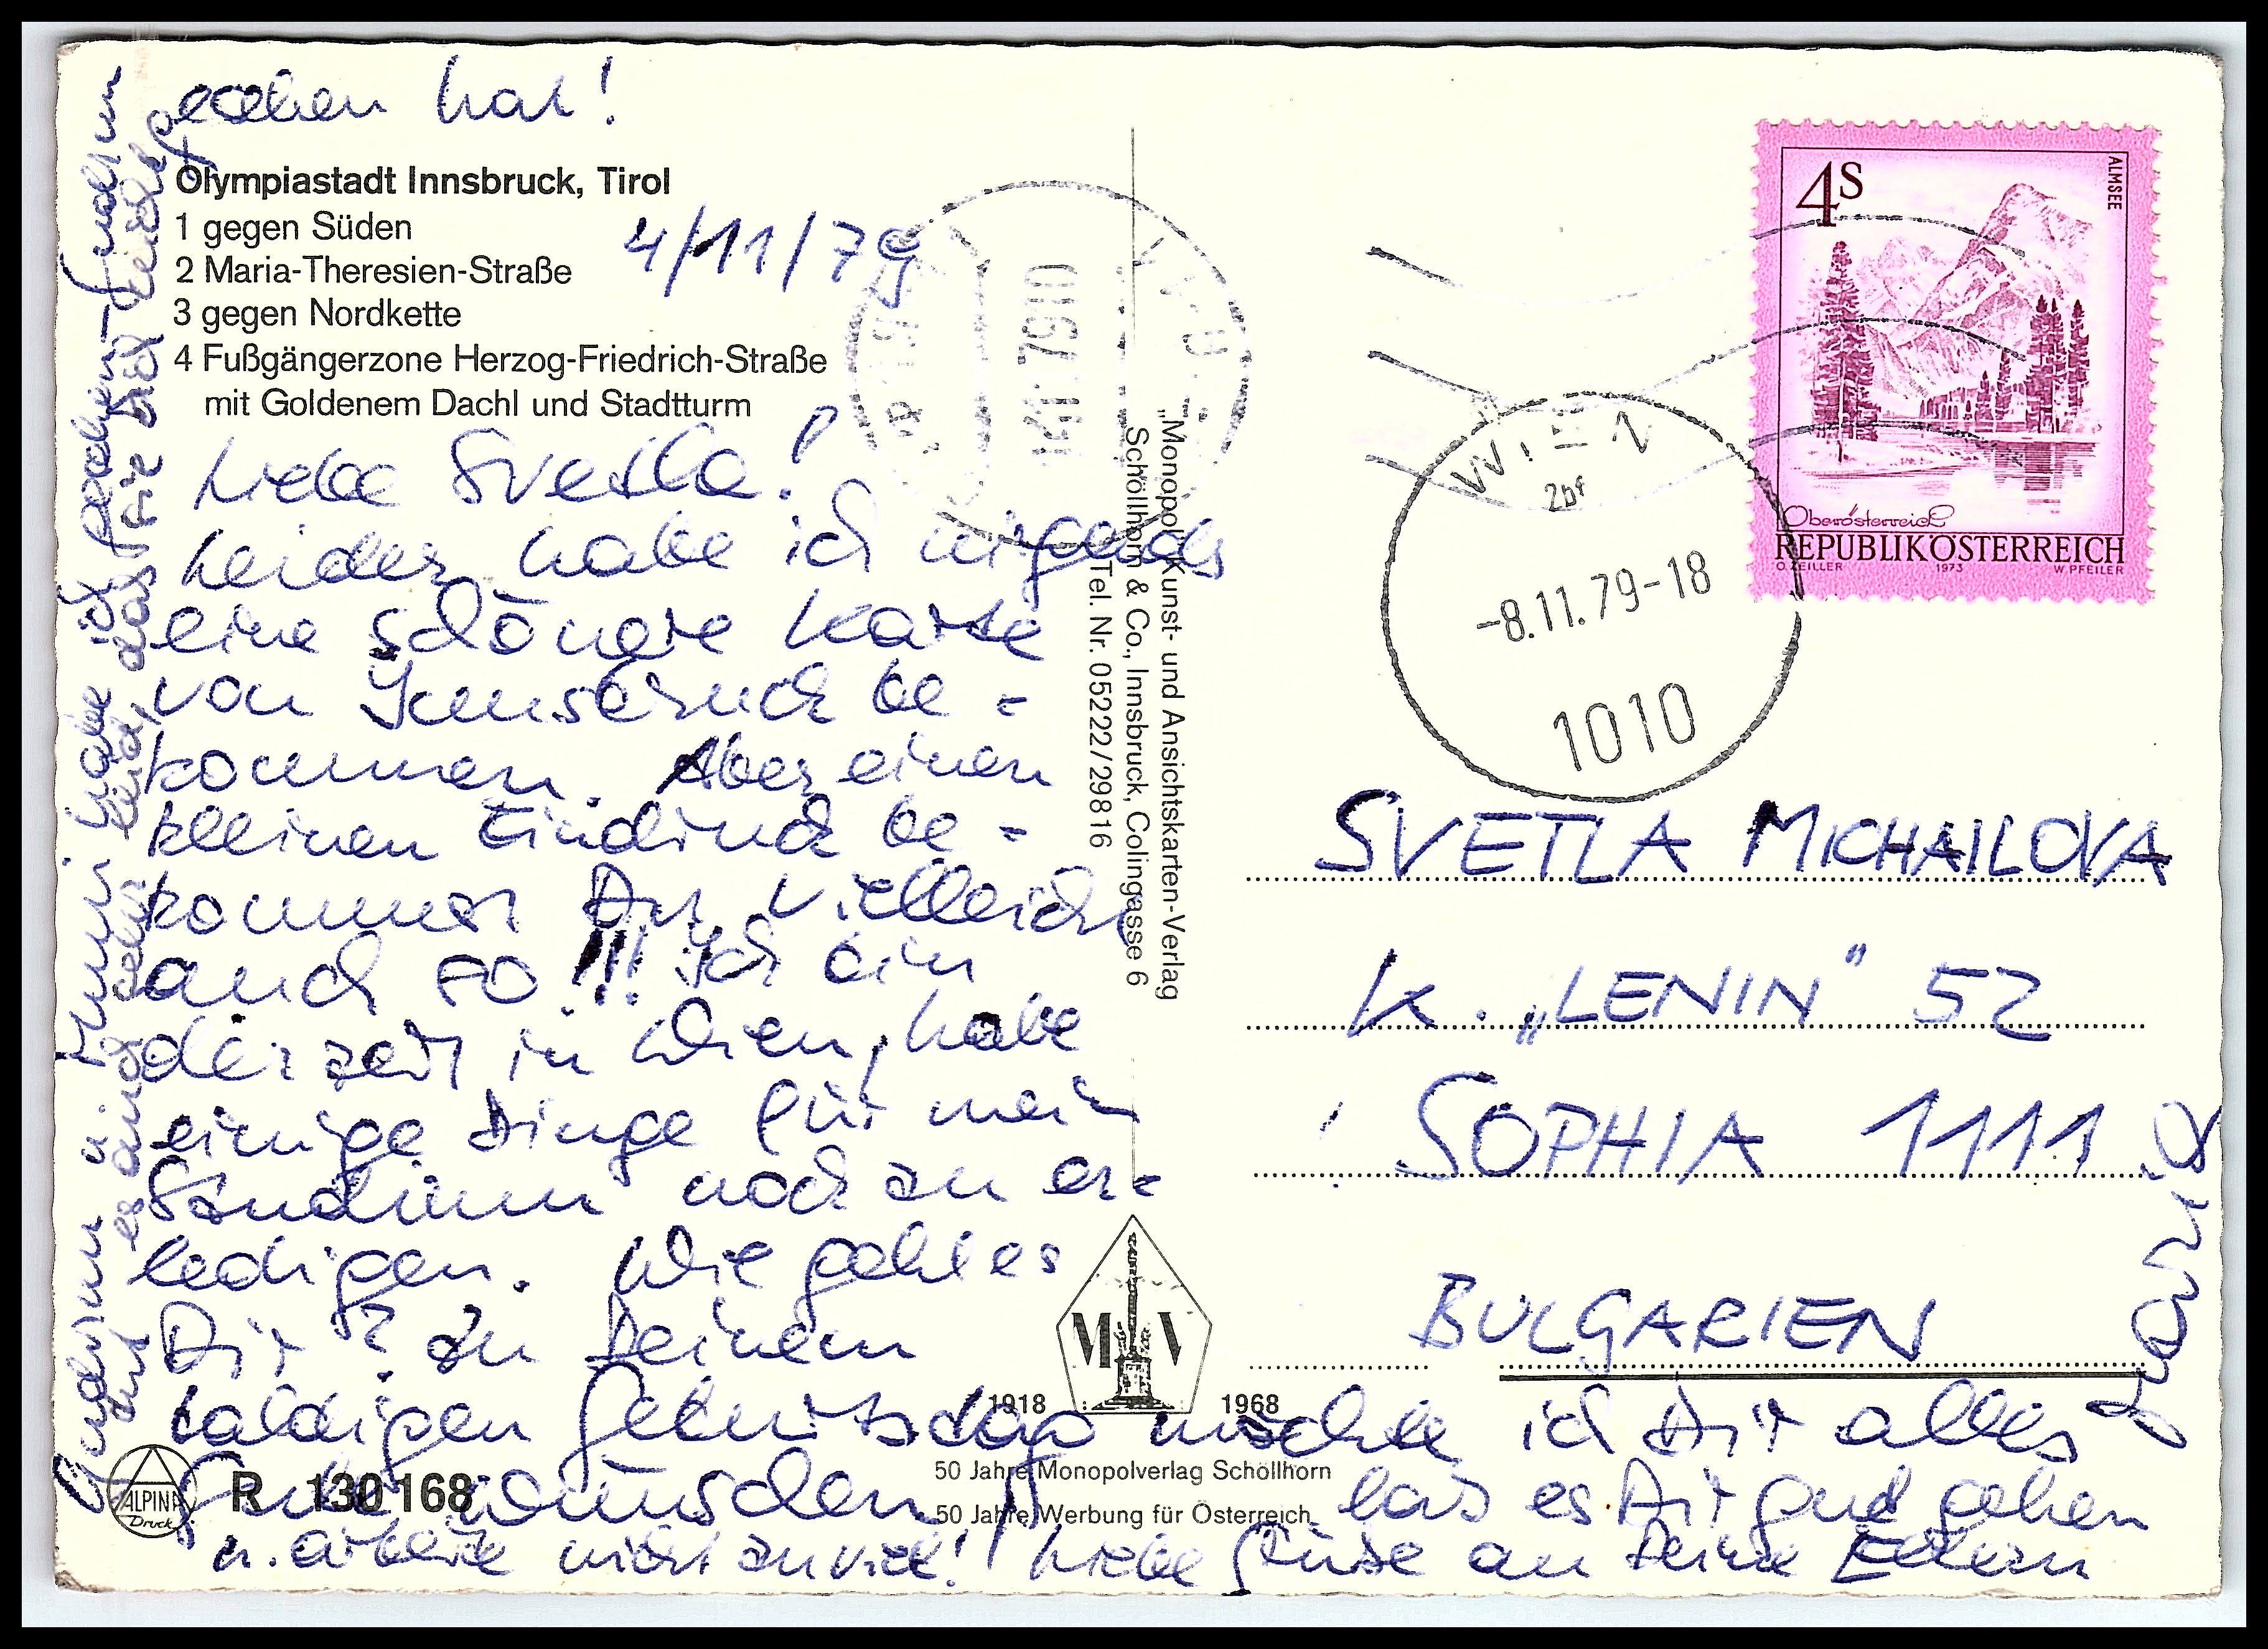 gesehen hat!
Olympiastadt Innsbruck, Tirol
1 gegen Süden
2 Maria-Theresien-Straße
3 gegen Nordkette
4 Fußgängerzone Herzog-Friedrich-Straße
mit Goldenem Dachl und Stadtturm
4/11/79
Liebe Svetla!
Leider habe ich nirgends
eine schönere Karte
von Innsbruck be=
kommen. Aber einen
kleinen Eindruck be=
kommst Du vielleicht
auch so!!! Ich bin
derzeit in Wien, habe
einige Dinge für mein
Studium noch zu er=
ledigen. Wie geht es
Dir? Zu Deinem
baldigen Geburtstag möchte ich Dir alles
Gute wünschen, laß es Dir gut gehen
u. arbeite nicht zuviel! Liebe Grüße an Deine Eltern
habe ich
leid, daß sie sich
„Monopol“ Kunst- und Ansichtskarten-Verlag
Schöllhorn & Co., Innsbruck, Colingasse 6
Tel. Nr. 05222/29816
MV
1918 1968
50 Jahre Monopolverlag Schöllhorn
50 Jahre Werbung für Österreich
ALPINA
Druck
R 130168
4S
ALMSEE
Oberösterreich
REPUBLIK ÖSTERREICH
O. ZEILLER 1973 W. PFEILER
WIEN
-8.11.79-18
1010
SVETLA MICHAILOVA
K. „LENIN" 52
SOPHIA 1111
BULGARIEN